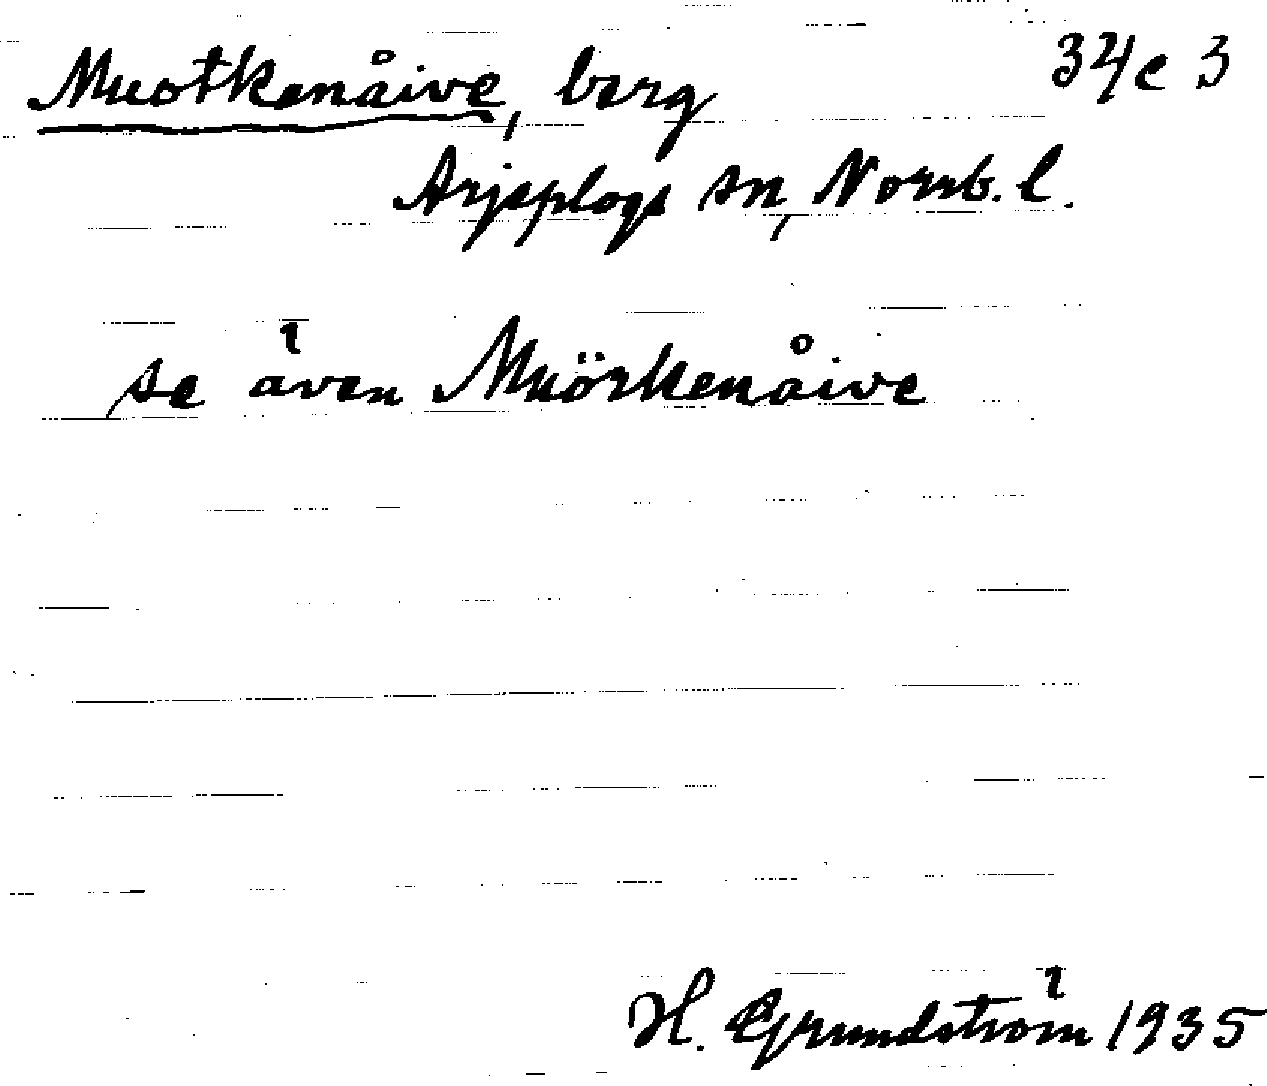 Muotkenåive, berg 34c 3
Arjeplogs sn, Norrb. l.
se även Muörkenåive
H. Grundström 1935